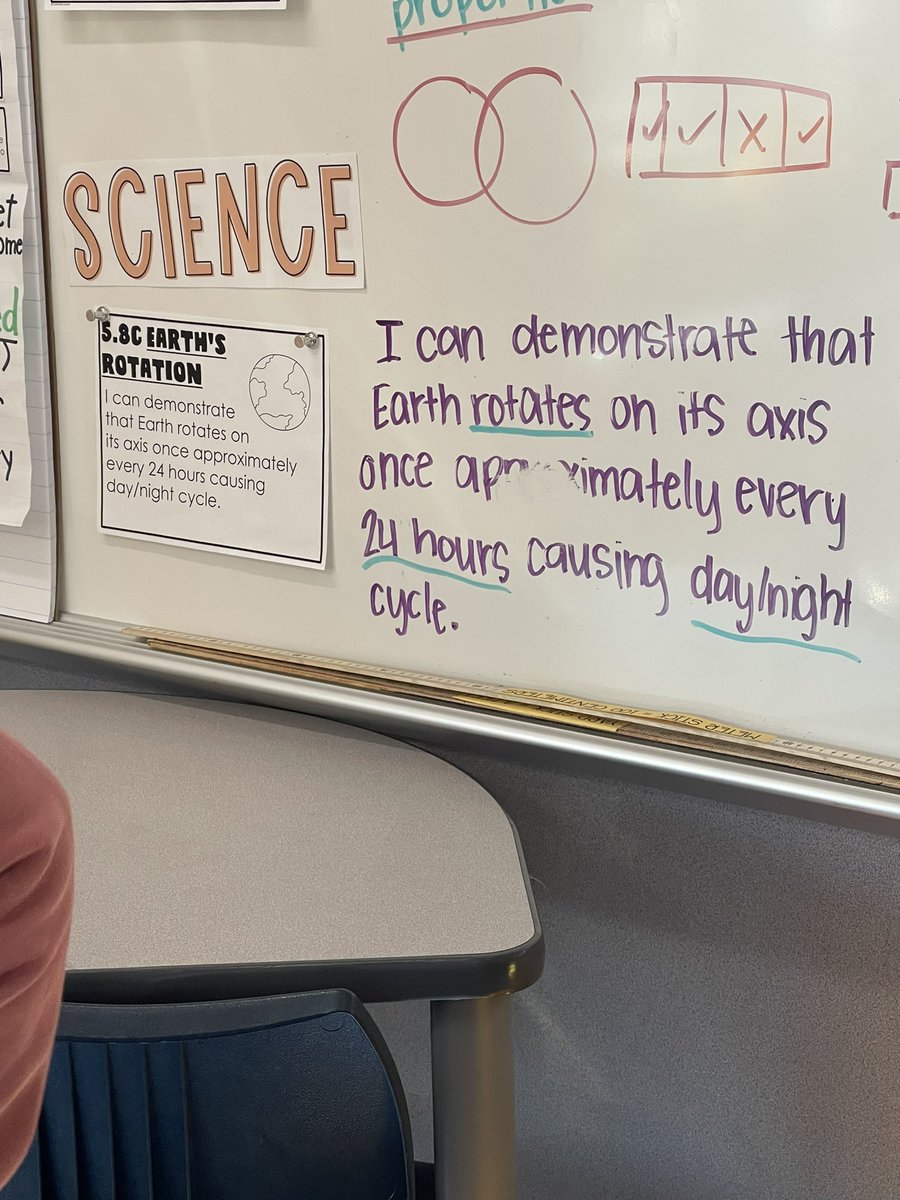 SCIENCE
5.8C EARTH'S
ROTATION
I can demonstrate
that Earth rotates on
its axis once approximately
every 24 hours causing
day/night cycle.
I can demonstrate that
Earth rotates on its axis
once every
24 hours causing day/night
cycle.
METER STICK - 100 CENTIMETERS